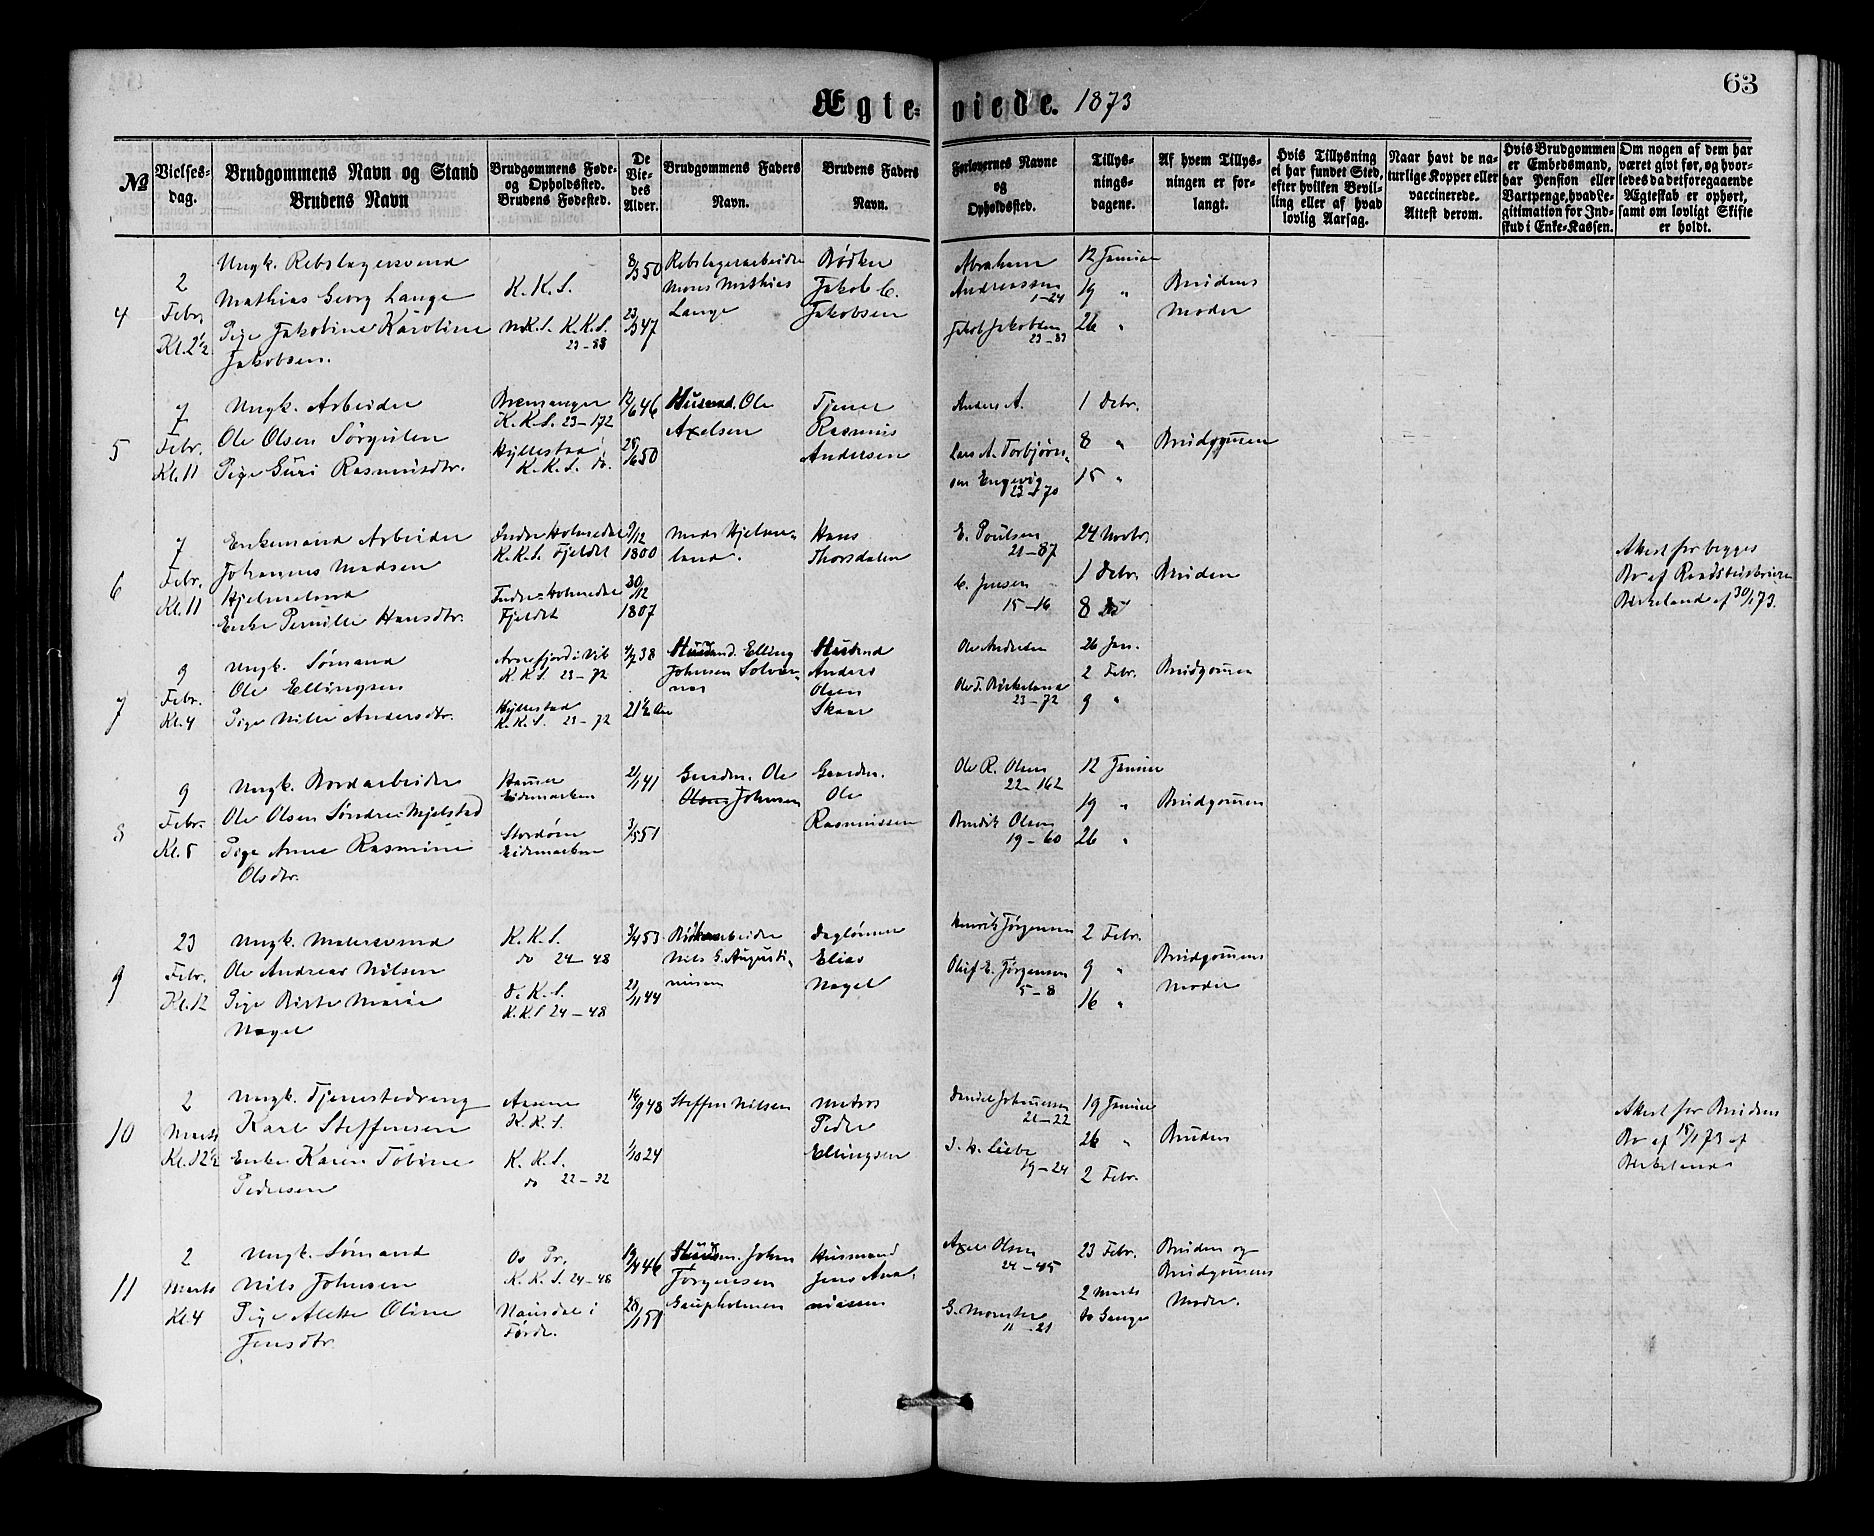 63
Ægteviede. 1873
No
Vielses-
dag.
Brudgommens Navn og Stand
Brudens Navn
Brudgommens Føde-
og Opholdssted.
Brudens Fødested.
De
Vie-
des
Alder.
Brudgommens Faders
Navn.
Brudens Faders
Navn.
Forlovernes Navne
og
Opholdssted.
Tillys-
nings-
dagene.
Af hvem Tillys-
ningen er for-
langt.
Hvis Tillysning
ei har fundet Sted,
efter hvilken Bevil-
ling eller af hvad
lovlig Aarsag.
Naar havt de na-
turlige Kopper eller
vaccinerede.
Attest derom.
Hvis Brudgommen
er Embedsmand,
har Pension eller
Vartpenge, hvad Le-
gitimation for Ind-
skud i Enke-Kassen.
Om nogen af dem har
været givt før, og hvor-
ledes da det foregaaende
Ægteskab er ophørt,
samt om lovligt Skifte
er holdt.
4
2
Febr.
Kl. 2½
Ungk. Rebslagersvend
Mathias Georg Lange
Pige Jakobine Karoline
Jakobsen.
K. K. S.
K. K. S.
23-83
8/3 50
23/3 47
Rebslagerarbeider
Mons Mathias
Lange
Bødker
Jakob C.
Jakobsen
Abraham
Andreassen
1-24
Jakob Jakobsen
23-83
12 Januar
19 "
26 "
Brudens
Moder
5
7
Febr.
Kl. 11
Ungk. Arbeider
Ole Olsen Sørgulen
Pige Guri Rasmusdtr.
Bremanger
K. K. S. 23-172
Hyllestad
K. K. S. do.
12/6 46
28/6 50
Husmd. Ole
Axelsen
Tjener
Rasmus
Andersen
Anders A.
Lars A. Torbjørn-
sen Engevig
23-70
1 Debr.
8 "
15 "
Brudgommen
6
7
Febr.
Kl. 11
Enkemand Arbeider
Johannes Madsen
Hjelmeland
Enke Pernille Hansdtr.
Indre Holmedal
K. K. S. Fjeldet
Indre-Holmedal
Fjeldet
9/12
1800
30/12
1807
Mads Hjelme-
land.
Hans
Thorsdalen
E. Poulsen
21-87
C. Jensen
15-16
24 Novbr.
1 Debr.
8 do
Bruden
Attest for begges
Br af Raadstueskriver
Birkeland af 30/1 73.
7
9
Febr.
Kl. 4
Ungk. Sømand
Ole Ellingsen
Pige Nille Andersdtr.
Arnefjord i Vik
K. K. S. 23-72
Hyllestad
K. K. S. 23-72
4/7 38
21½ Aar
Husmand. Elling
Johnsen Solvor-
nes
Husmd
Anders
Olsen
Skaar
Ole Andersen
Ole T. Birkeland
23-72
26 Jan.
2 Febr.
9 "
Brudgommen
8
9
Febr.
Kl. 5
Ungk. Bordarbeider
Ole Olsen Søndre-Mjelstad
Pige Anne Rasmine
Olsdtr.
Hammer
Eidemarken
Stordøen
Eidemarken
2/1 41
3/5 51
Gaardm. Ole
Olsen Johnsen
Gaardm.
Ole
Rasmussen
Ole R. Olsen
22-162
Bendik Olsen
19-60
12 Januar
19 "
26 "
Brudgommen
9
23
Febr.
Kl. 12
Ungk. Malersvend
Ole Andreas Nilsen
Pige Birte Marie
Nagel
K. K. S.
do 24-48
D. K. S.
K. K. S 24-48
3/4 53
21/11 44
Nils G. Augusti-
nusen
Dagløner
Elias
Nagel
Henrik Jørgensen
Oluf E. Jørgensen
5-8
2 Febr.
9 "
16 "
Brudgommens
Moder
10
2
Marts
Kl. 12½
Ungk. Tjenestedreng
Karl Steffensen
Enke Karen Tobine
Pedersen
Aasene
K. K. S.
K. K. S.
do 22-32
16/9 48
1/10 24
Steffen Nilsen
Matros
Peder
Ellingsen
Daniel Johannessen
21-22
J. H. Liebe
19-24
19 Januar
26 "
2 Febr.
Bruden
Attest for Brudens
Br af 15/1 73 af
Birkeland
11
2
Marts
Kl. 4
Ungk. Sømand
Nils Johnsen
Pige Alette Oline
Jensdtr.
Os Pr.
K. K. S. 24-48
Naustdal i
Førde.
19/4 46
28/1 51
Husm. John
Jørgensen
Gaupholmen
Husmand
Jens Ana-
niassen
Axel Olsen
24-45
G. Monsen
11-21
23 Febr.
2 Marts
to Gange
Bruden og
Brudgommens
Moder.